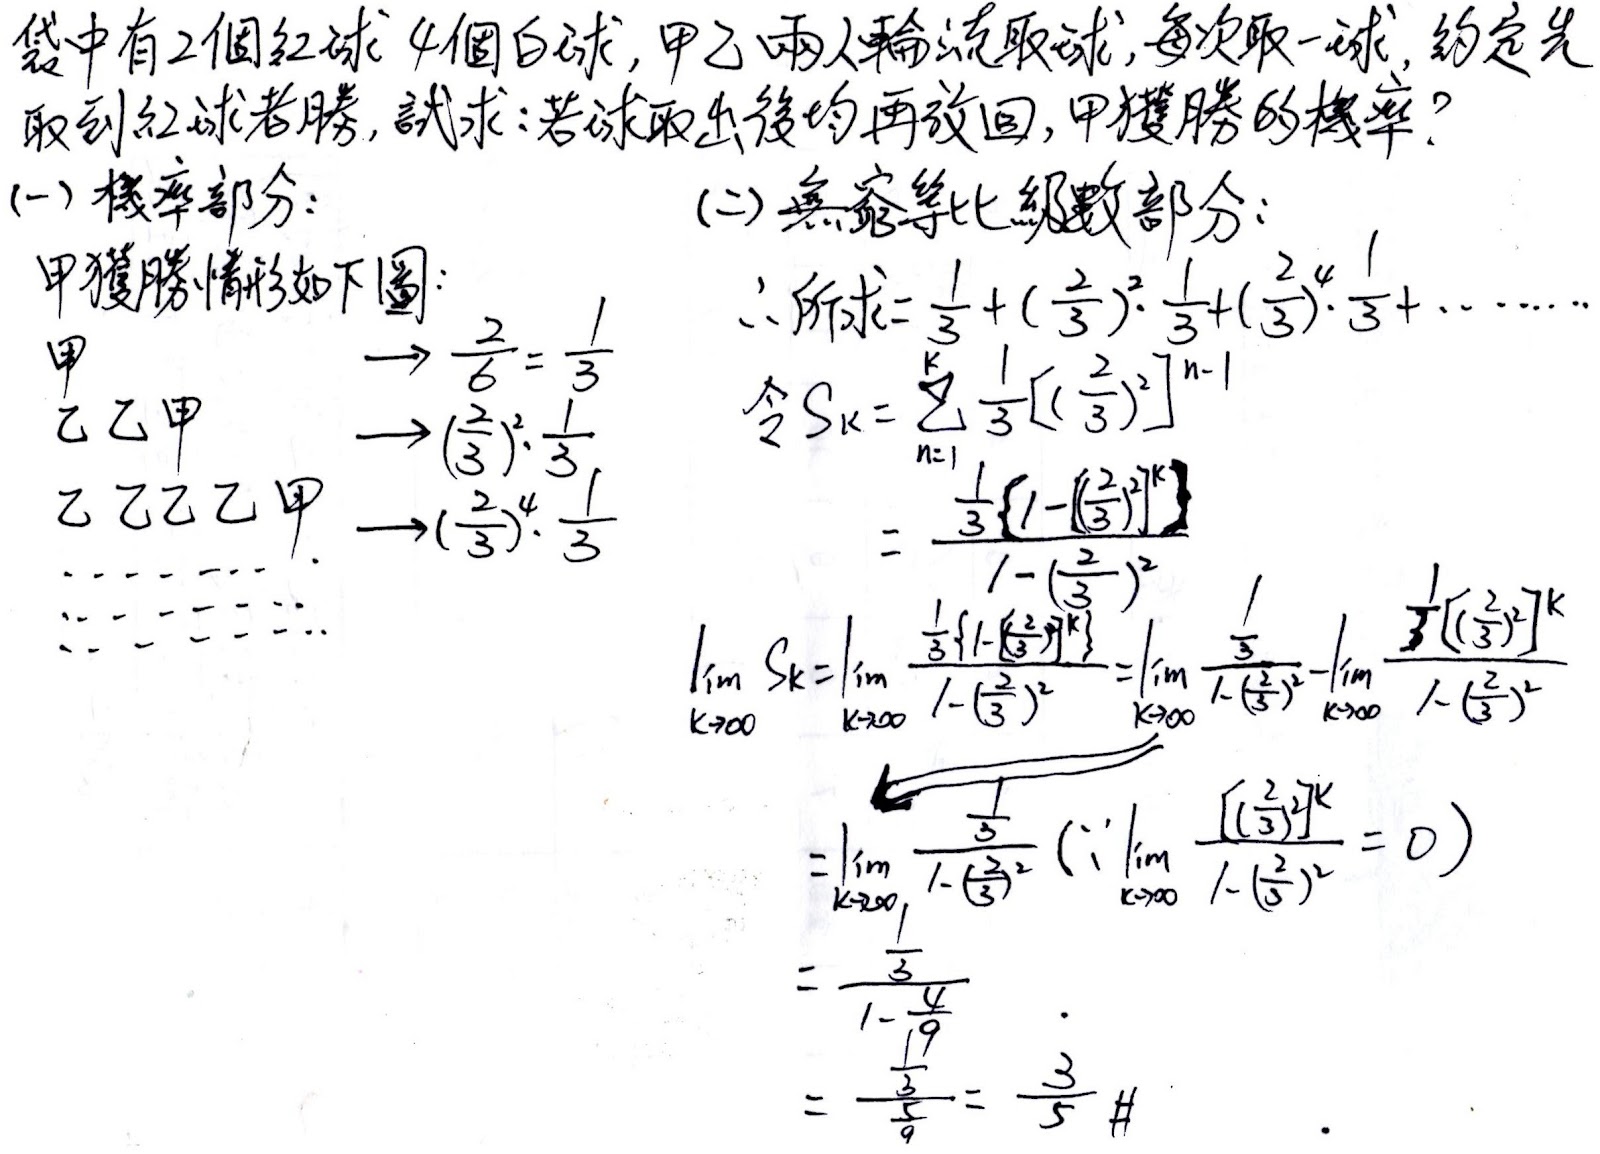 袋中有2個紅球 4個白球,甲乙兩人輪流取球,每次取一球,約定先
取到紅球者勝,試求:若球取出後均再放回,甲獲勝的機率?
(一) 機率部分:
甲獲勝情形如下圖:
甲 → 2/6 = 1/3
乙乙甲 → (2/3)²·1/3
乙乙乙乙甲 → (2/3)⁴·1/3
(二) 無窮等比級數部分:
∴所求= 1/3 + (2/3)²·1/3 + (2/3)⁴·1/3 + ………
令 Sₖ = Σ_{n=1}^{k} 1/3[(2/3)²]^{n-1}
= 1/3{1-[(2/3)²]^k} / 1-(2/3)²
lim_{k→∞} Sₖ = lim_{k→∞} 1/3{1-[(2/3)²]^k} / 1-(2/3)² = lim_{k→∞} 1/3 / 1-(2/3)² - lim_{k→∞} 1/3[(2/3)²]^k / 1-(2/3)²
= lim_{k→∞} 1/3 / 1-(2/3)² (∵ lim_{k→∞} [(2/3)²]^k / 1-(2/3)² = 0)
= 1/3 / 1-4/9
= 1/3 / 5/9 = 3/5 #